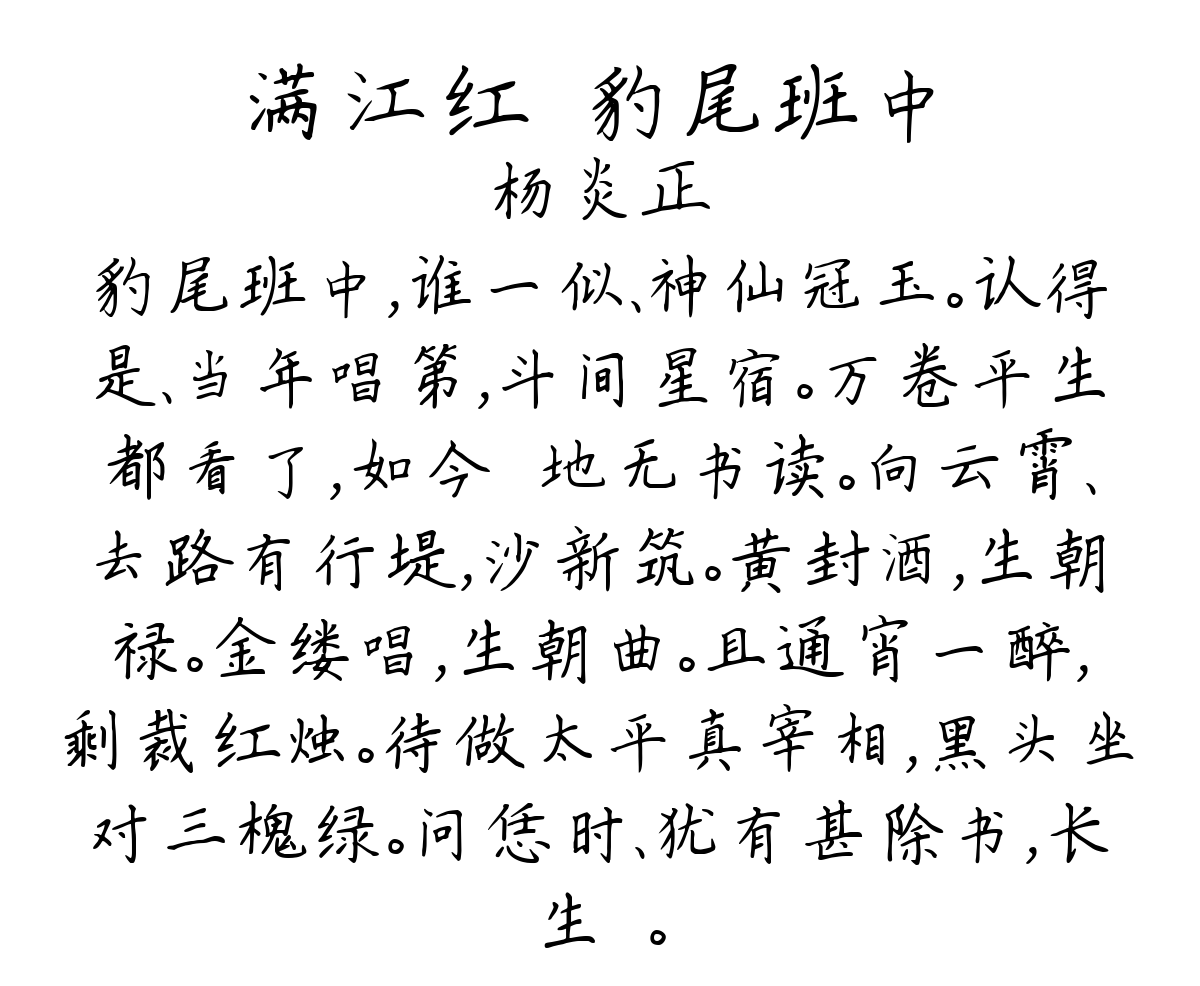 满江红 豹尾班中
杨炎正
豹尾班中,谁一似、神仙冠玉。认得
是、当年唱第,斗间星宿。万卷平生
都看了,如今 地无书读。向云霄、
去路有行堤,沙新筑。黄封酒,生朝
禄。金缕唱,生朝曲。且通宵一醉,
剩裁红烛。待做太平真宰相,黑头坐
对三槐绿。问恁时、犹有甚除书,长
生 。